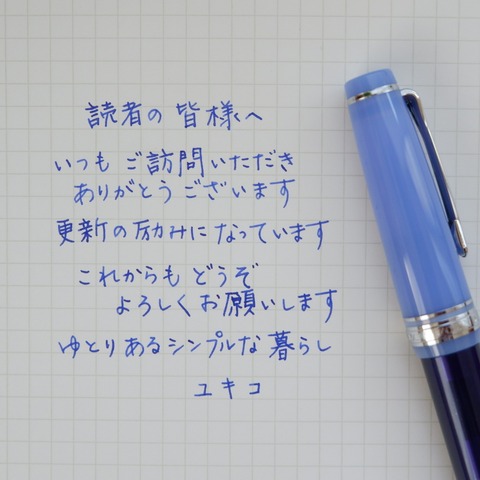 読者の皆様へ
いつもご訪問いただき
ありがとうございます
更新の励みになっています
これからもどうぞ
よろしくお願いします
ゆとりあるシンプルな暮らし
ユキコ